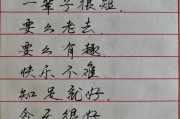 一辈子很短.
要么老去.
要么有趣.
快乐不难
知足就好.
今天很好